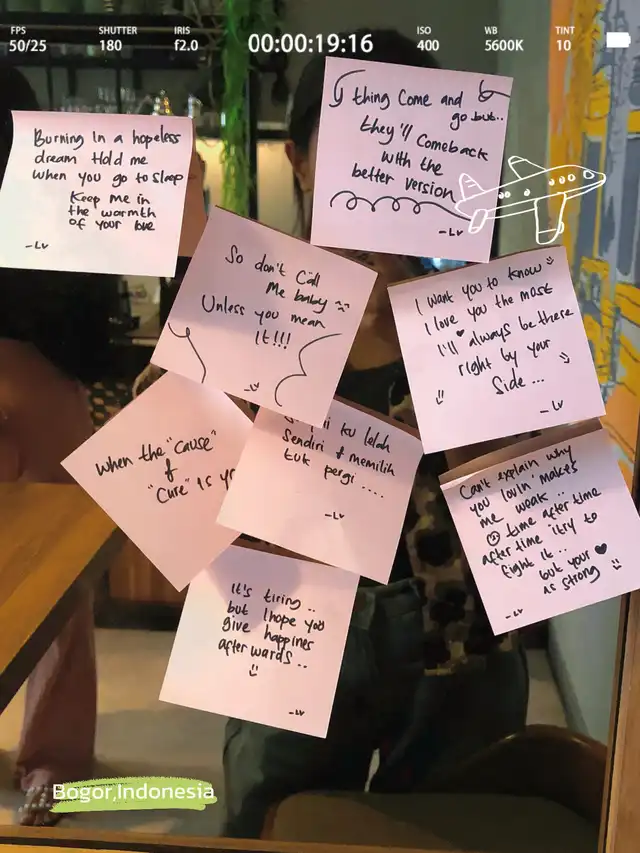 FPS
50/25
SHUTTER
180
IRIS
f2.0
00:00:19:16
ISO
400
WB
5600K
TINT
10
Burning In a hopeless
dream Hold me
when you go to sleep
Keep me in
the warmth
of your love
-Lv
thing Come and
go but..
they'll Comeback
with the
better version
-Lv
So don't Call
Me baby
Unless you mean
It!!!
-Lv
I want you to know
I love you the most
I'll always be there
right by your
Side ...
-Lv
When the "cause"
&
"Cure" Is
ku lelah
Sendiri & memilih
tuk pergi ....
-Lv
Can't explain why
you lovin' makes
me weak ..
time after time
after time itry to
fight it ..
but your ♥
as strong
-Lv
It's tiring ..
but I hope you
give happines
afterwards ..
-Lv
Bogor,Indonesia